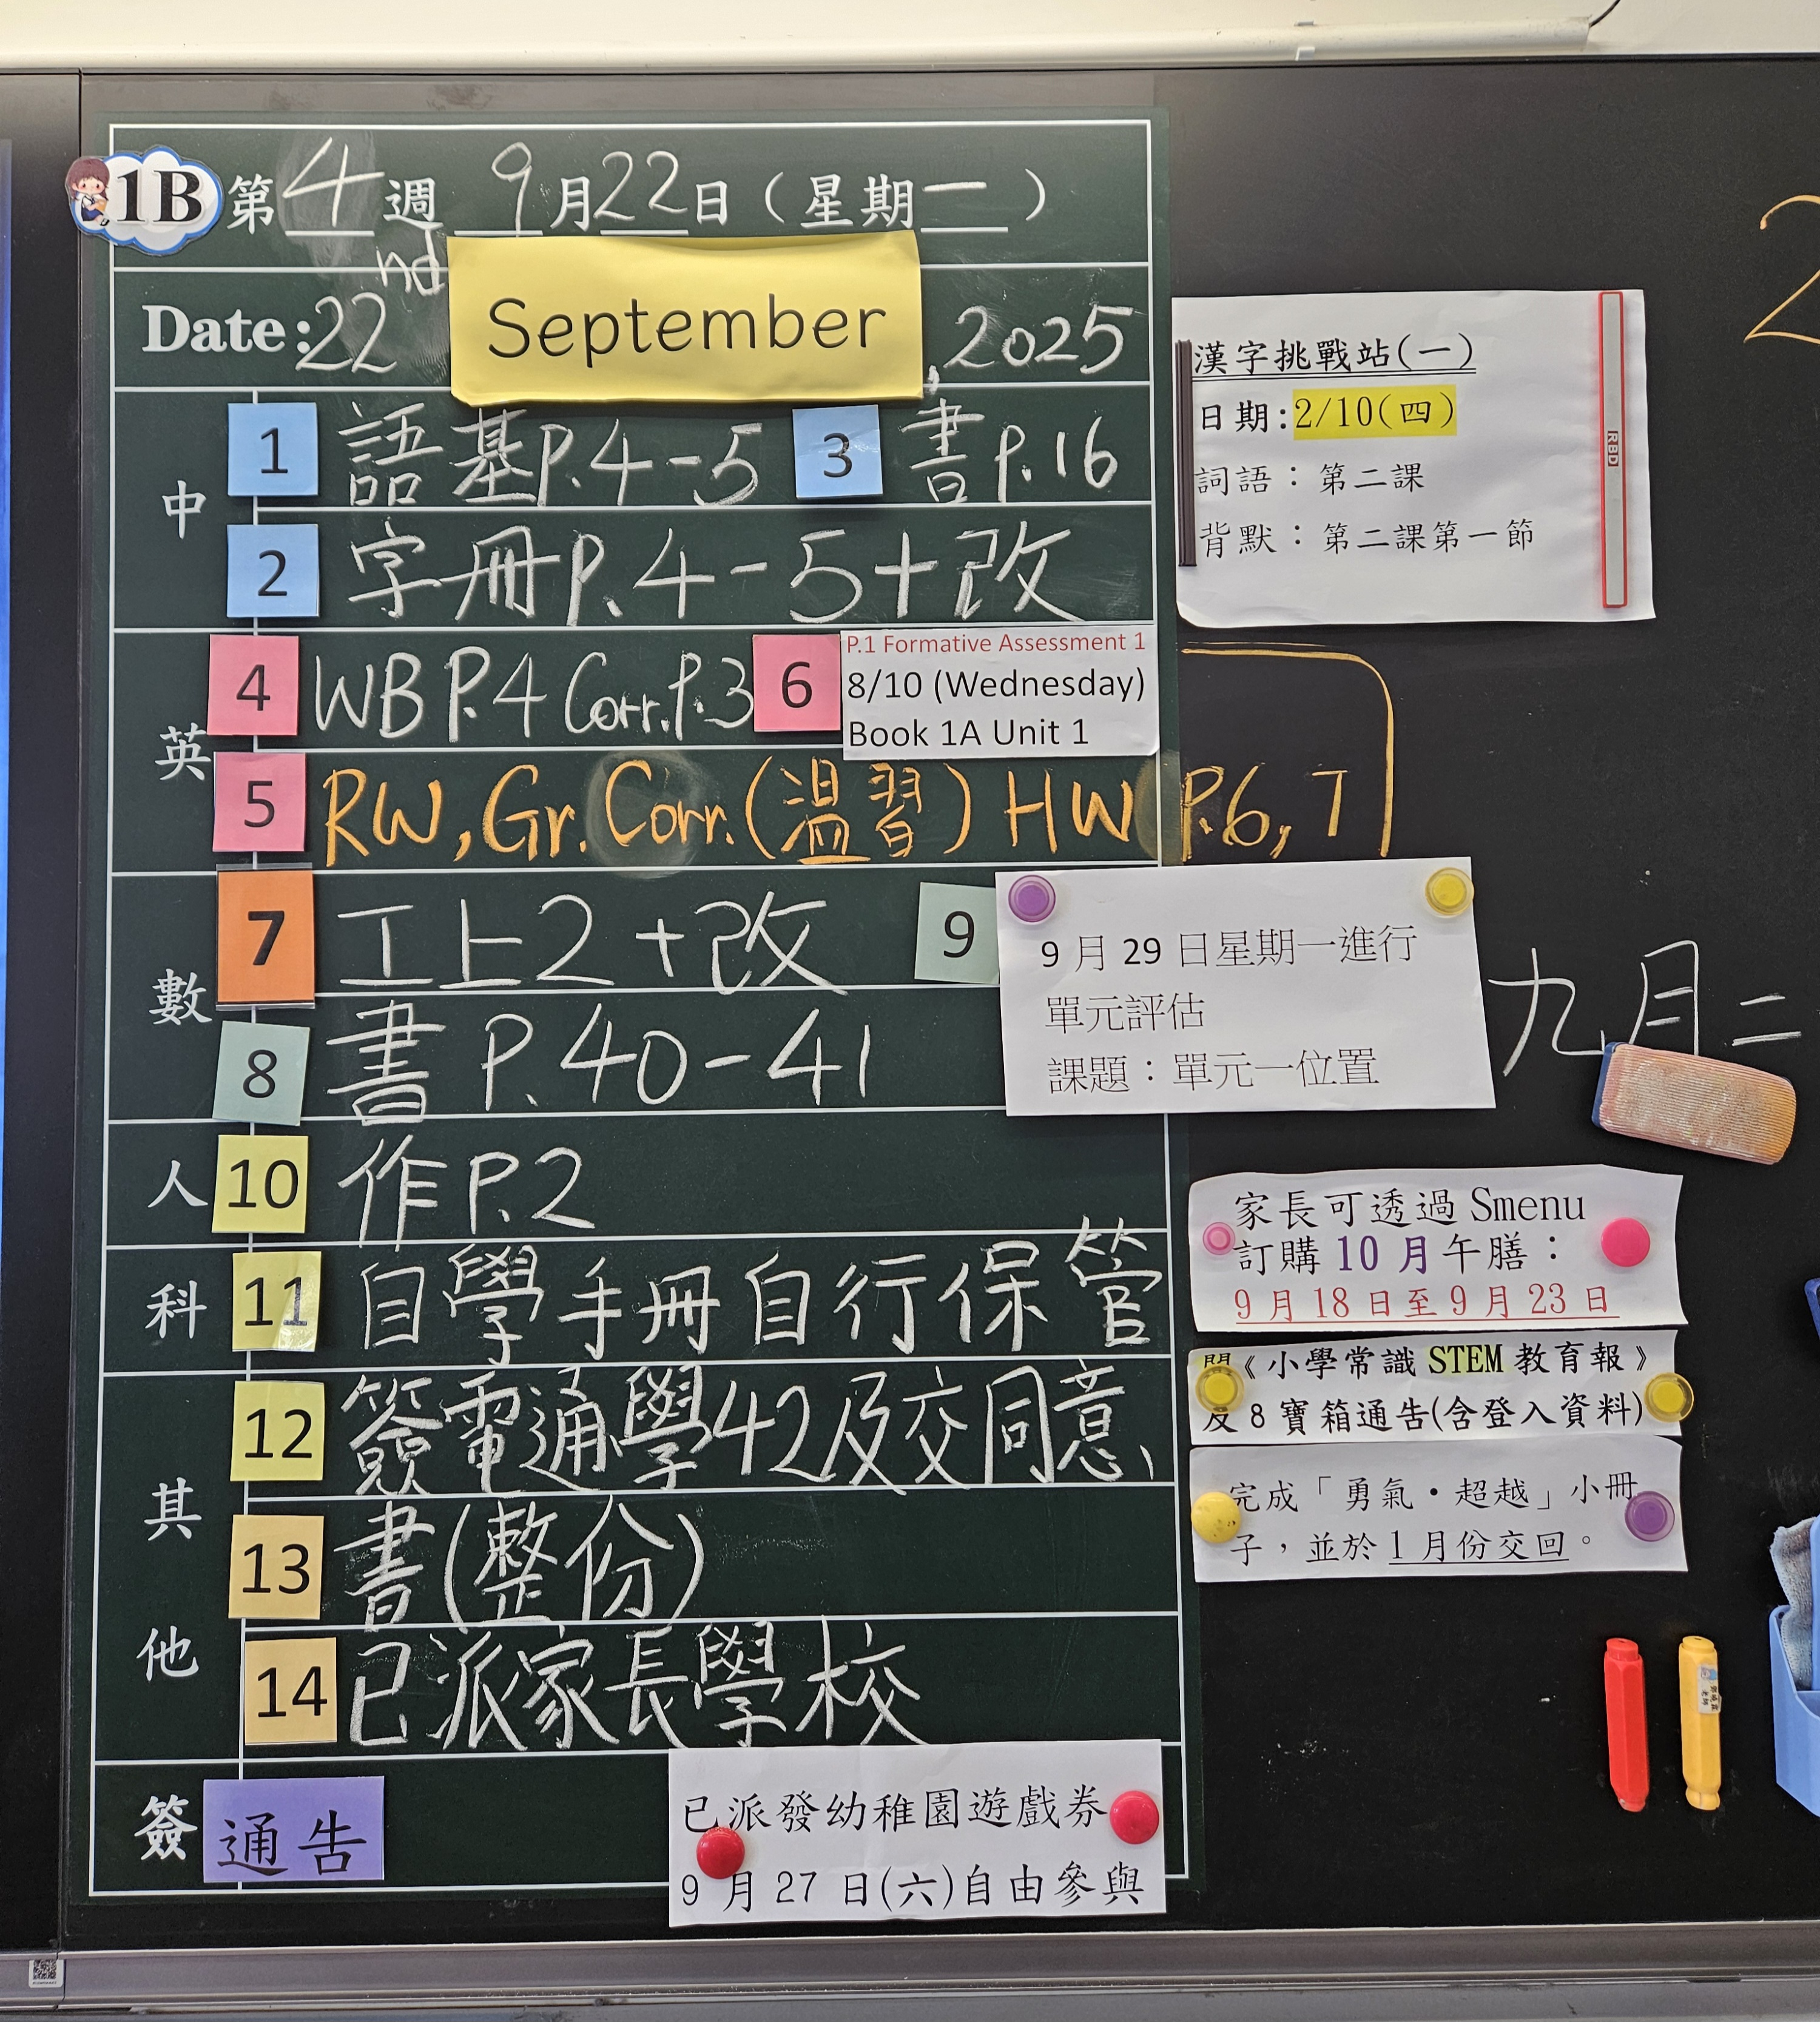 1B 第 4 週 9 月 22 日（星期一）
Date: 22nd September, 2025
中
1 語基P.4-5 3 書P.16
2 字冊P.4-5+改
英
4 WB P.4 Corr. P.3 6 P.1 Formative Assessment 1
8/10 (Wednesday)
Book 1A Unit 1
5 RW, Gr. Corr. (溫習) HW P.6, 7
數
7 工上2+改 9
8 書 P.40-41
人 10 作P.2
科 11 自學手冊自行保管
其他
12 簽電通學42及交同意
13 書(整份)
14 已派家長學校
簽 通告
已派發幼稚園遊戲券
9月27日(六)自由參與
漢字挑戰站(一)
日期:2/10(四)
詞語：第二課
背默：第二課第一節
9月29日星期一進行
單元評估
課題：單元一位置
九月二
家長可透過 Smenu
訂購 10 月午膳：
9月18日至9月23日
閱《小學常識 STEM 教育報》
及 8 寶箱通告(含登入資料)
完成「勇氣•超越」小冊
子，並於1月份交回。
RBD
2